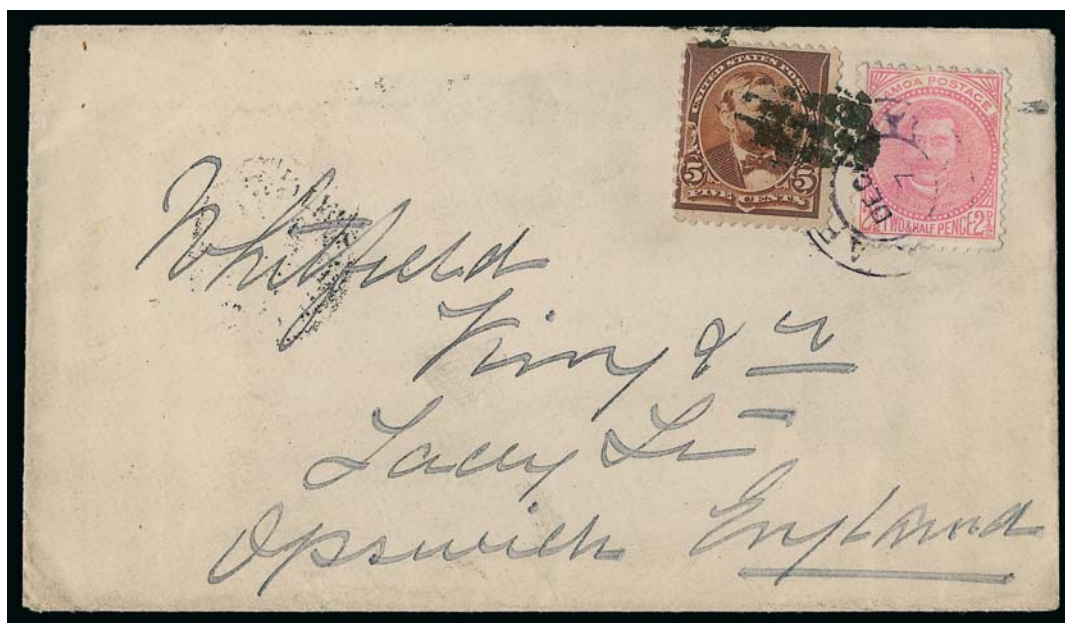 UNITED STATES POST
5 5
FIVE CENTS
SAMOA POSTAGE
TWO & HALF PENCE 2
DEC 7
Whitfield
King & Co
Lacey St
Ipswich England